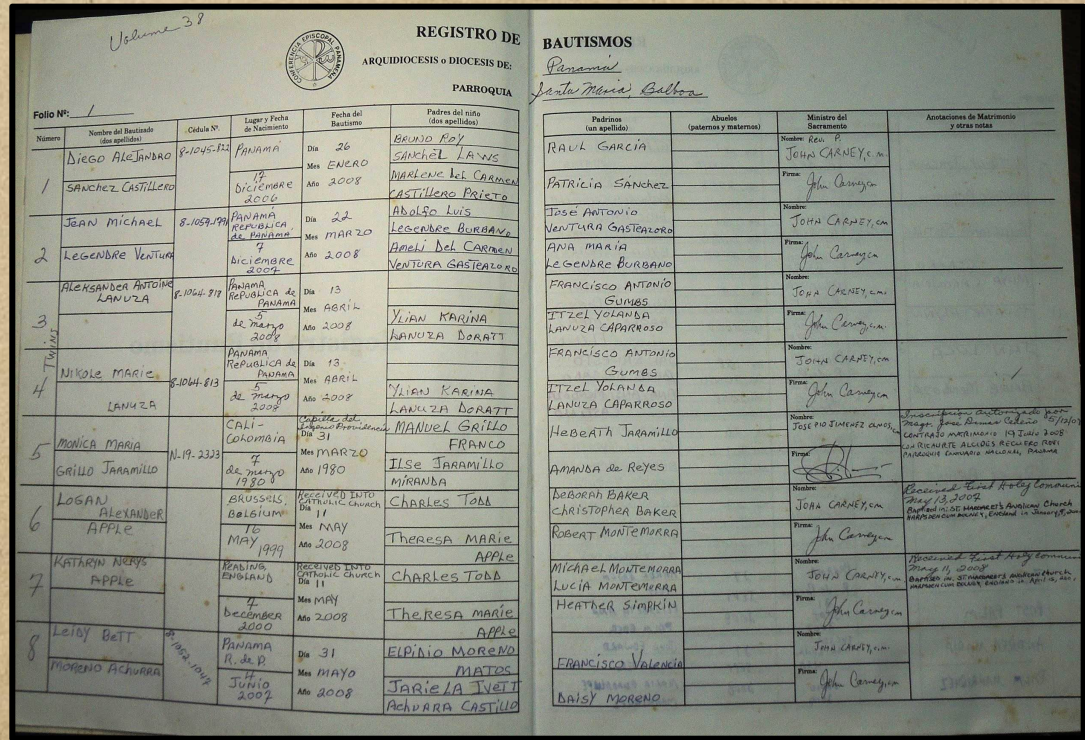 Volume 38
CONFERENCIA EPISCOPAL PANAMEÑA
REGISTRO DE BAUTISMOS
ARQUIDIOCESIS o DIOCESIS DE: Panamá
PARROQUIA Santa Maria, Balboa
Folio Nº: 1
Número
Nombre del Bautisado (dos apellidos)
Cédula Nº
Lugar y Fecha de Nacimiento
Fecha del Bautismo
Padres del niño (dos apellidos)
Padrinos (un apellido)
Abuelos (paternos y maternos)
Ministro del Sacramento
Anotaciones de Matrimonio y otras notas
1
DIEGO ALEJANDRO
SANCHEZ CASTILLERO
8-1045-822
PANAMÁ
17
Diciembre
2006
Día 26
Mes ENERO
Año 2008
BRUNO ROY
SANCHEZ LAWS
MARLENE DEL CARMEN
CASTILLERO PRIETO
RAUL GARCÍA
PATRICIA SÁNCHEZ
Nombre: Rev.
JOHN CARNEY, c.m.
Firma: John Carney cm
2
JEAN MICHAEL
LEGENDRE VENTURA
PANAMÁ
REPUBLICA
de PANAMÁ
7
Diciembre
2007
Día 22
Mes MARZO
Año 2008
ADOLFO LUIS
LEGENDRE BURBANO
AMELI DEL CARMEN
VENTURA GASTEAZORO
JOSÉ ANTONIO
VENTURA GASTEAZORO
ANA MARIA
LEGENDRE BURBANO
Nombre:
JOHN CARNEY, cm
Firma: John Carney cm
3
Twins
ALEKSANDER ANTOINE
LANUZA
8-1064-818
PANAMA
REPUBLICA de
PANAMA
5
de marzo
2008
Día 13
Mes ABRIL
Año 2008
YLIAN KARINA
LANUZA DORATT
FRANCISCO ANTONIO
GUMBS
ITZEL YOLANDA
LANUZA CAPARROSO
Nombre:
JOHN CARNEY, c.m.
Firma: John Carney cm
4
NIKOLE MARIE
LANUZA
8-1064-813
PANAMA
REPUBLICA de
PANAMA
5
de marzo
2008
Día 13
Mes ABRIL
Año 2008
YLIAN KARINA
LANUZA DORATT
FRANCISCO ANTONIO
GUMBS
ITZEL YOLANDA
LANUZA CAPARROSO
Nombre:
JOHN CARNEY, cm
Firma: John Carney cm
5
MONICA MARIA
GRILLO JARAMILLO
N-19-2323
CALI-
COLOMBIA
7
de marzo
1980
Capilla del
Providencia
Día 31
Mes MARZO
Año 1980
MANUEL GRILLO
FRANCO
ILSE JARAMILLO
MIRANDA
HEBERTH JARAMILLO
AMANDA de REYES
Nombre:
JOSE PIO JIMENEZ
Firma:
Inscripcion autorizada por
Msgr. José Dimas Cedeño
CONTRAJO MATRIMONIO 19 Julio 2008
CON RICAURTE ALCIDES
PARROQUIA SANTUARIO NACIONAL, PANAMA
6
LOGAN
ALEXANDER
APPLE
BRUSSELS,
BELGIUM
16
MAY
1999
RECEIVED INTO
CATHOLIC CHURCH
Día 11
Mes MAY
Año 2008
CHARLES TODD
THERESA MARIE
APPLE
DEBORAH BAKER
CHRISTOPHER BAKER
ROBERT MONTEMORRA
Nombre:
JOHN CARNEY, cm
Firma: John Carney cm
Received First Holy Communi
May 13, 2007
Baptized in: ST. MARGARET'S ANGLICAN Church
ENGLAND in January
7
KATHRYN NERYS
APPLE
READING,
ENGLAND
7
December
2000
RECEIVED INTO
CATHOLIC CHURCH
Día 11
Mes MAY
Año 2008
CHARLES TODD
THERESA MARIE
APPLE
MICHAEL MONTEMORRA
LUCIA MONTEMORRA
HEATHER SIMPKIN
Nombre:
JOHN CARNEY, c.m.
Firma: John Carney cm
Received First Holy Commun
May 11, 2008
BAPTIZED IN: ST. MARGARET'S ANGLICAN CHURCH
8
LEIDY BETT
MORENO ACHURRA
8-1052-1047
PANAMA
R. de P.
4
JUNIO
2007
Día 31
Mes MAYO
Año 2008
ELPIDIO MORENO
MATOS
JARIELA IVETT
ACHURRA CASTILLO
FRANCISCO VALENCIA
DAISY MORENO
Nombre:
JOHN CARNEY, c.m.
Firma: John Carney, cm